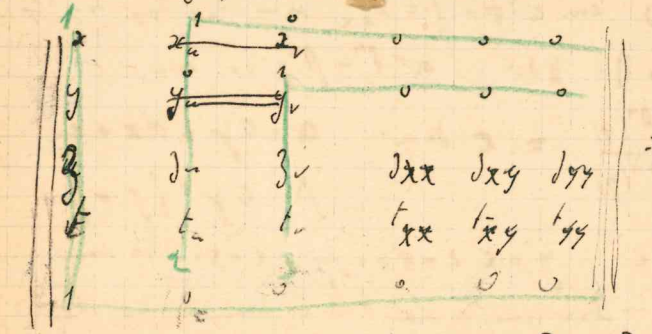 1 1 0
x x_u x_v 0 0 0
0 1
y y_u y_v 0 0 0
z z_u z_v z_xx z_xy z_yy
t t_u t_v t_xx t_xy t_yy
1 0 0 0 0 0